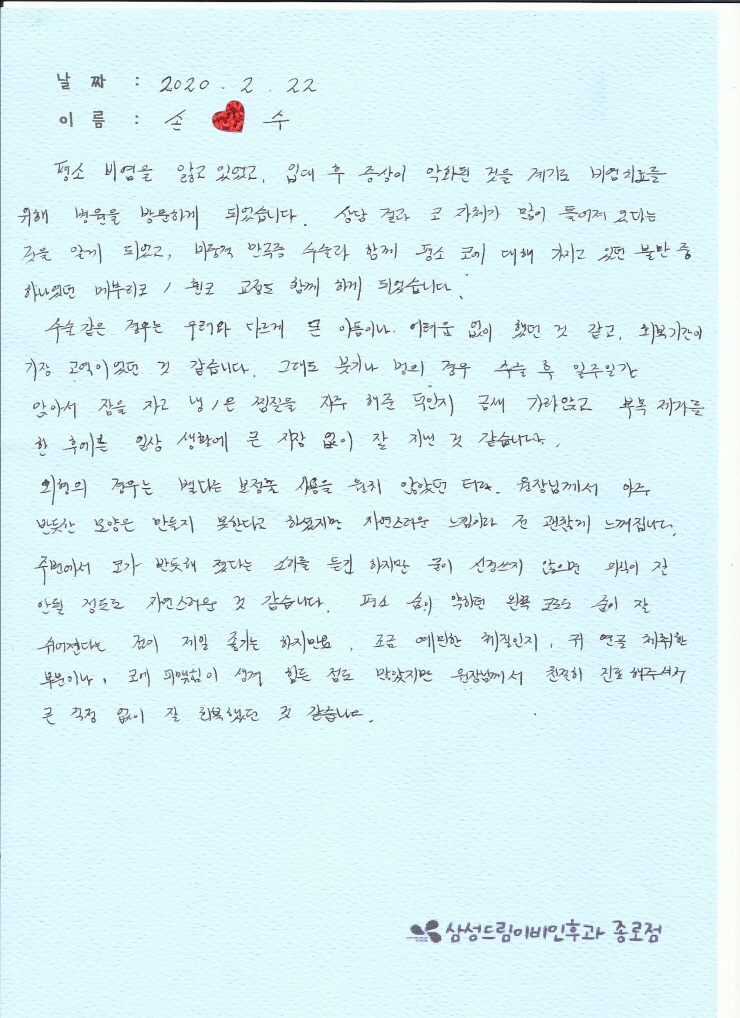 날 짜 : 2020. 2. 22
이 름 : 손 수
평소 비염을 앓고 있었고, 입대 후 증상이 악화된 것을 계기로 비염치료를
위해 병원을 방문하게 되었습니다. 상담 결과 코 자체가 많이 틀어져 있다는
것을 알게 되었고, 비중격 만곡증 수술과 함께 평소 코에 대해 가지고 있던 불만 중
하나였던 매부리코 / 휜코 교정도 함께 하게 되었습니다.
수술같은 경우는 우려와 다르게 큰 아픔이나 어려움 없이 했던 것 같고, 회복기간이
가장 고역이었던 것 같습니다. 그래도 붓기나 멍의 경우 수술 후 일주일간
앉아서 잠을 자고 냉/온 찜질을 자주 해준 덕인지 금새 가라앉고 부목 제거를
한 후에는 일상 생활에 큰 지장 없이 잘 지낸 것 같습니다.
외형의 경우는 별다른 보정물 사용을 원치 않았던 터라. 원장님께서 아주
반듯한 모양은 만들지 못한다고 하셨지만 자연스러운 느낌이라 전 괜찮게 느껴집니다.
주변에서 코가 반듯해 졌다는 소리를 듣긴 하지만 굳이 신경쓰지 않으면 의식이 잘
안될 정도로 자연스러운 것 같습니다. 평소 숨이 약하던 왼쪽 코로도 숨이 잘
쉬어진다는 점이 제일 즐기는 하지만요. 조금 예민한 체질인지, 귀 연골 채취한
부분이나, 코에 피맺힘이 생겨 힘든 점도 많았지만 원장님께서 친절히 진료해주셔서
큰 걱정 없이 잘 회복했던 것 같습니다.
삼성드림이비인후과 종로점